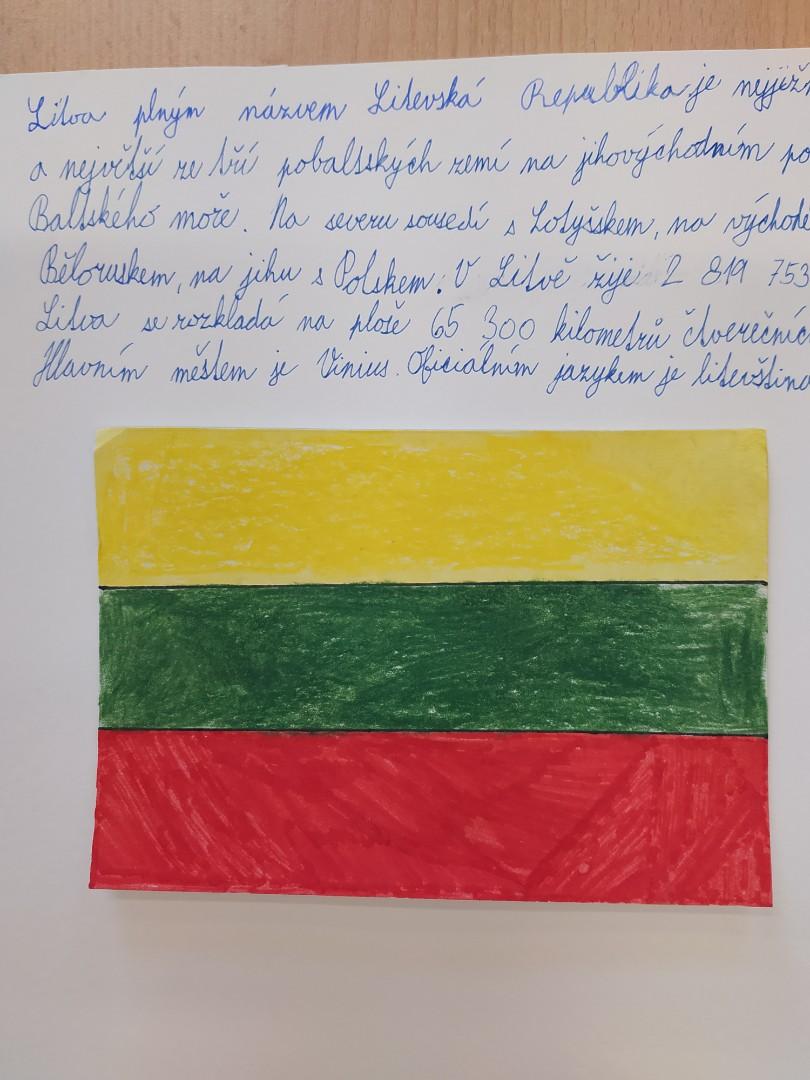 Litva plným názvem Litevská Republika je nejjižn
a největší ze tří pobaltských zemí na jihovýchodním po
Baltského moře. Na severu sousedí s Lotyšskem, na východě
Běloruskem, na jihu s Polskem. V Litvě žije 2 819 753
Litva se rozkládá na ploše 65 300 kilometrů čtverečníc
Hlavním městem je Vinius. Oficiálním jazykem je litevština